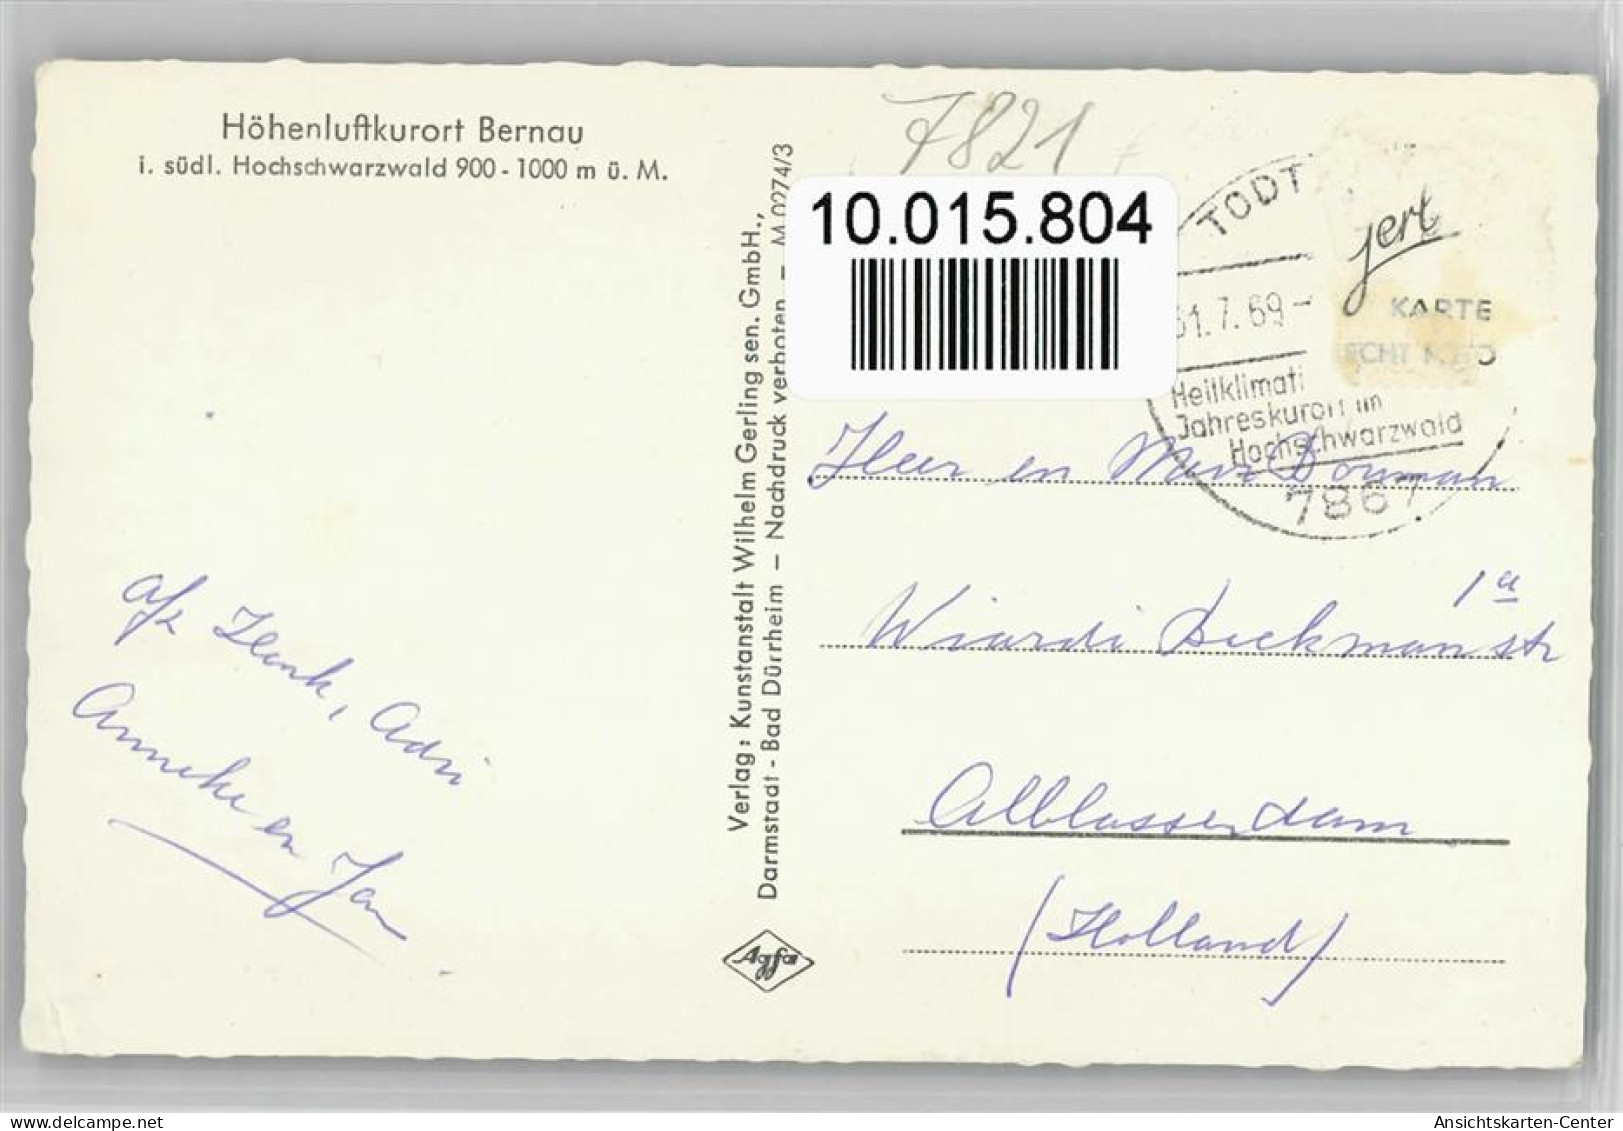 Höhenluftkurort Bernau
i. südl. Hochschwarzwald 900 - 1000 m ü. M.
afz Henk, Adri
Anneke en Jan
Verlag: Kunstanstalt Wilhelm Gerling sen. GmbH.,
Darmstadt - Bad Dürrheim — Nachdruck verboten — M 0274/3
Agfa
7821
10.015.804
TODT
31.7.69-
Heilklimati
Jahreskurort im
Hochschwarzwald
7867
jert
KARTE
ECHT FOTO
Heer en Mevr Borsman
1a
Wiardi Beckmanstr
Alblasserdam
(Holland)
delcampe.net
Ansichtskarten-Center